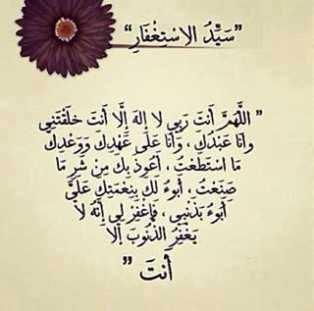 "سَيِّدُ الِاسْتِغْفَارِ"
" اللَّهُمَّ أَنتَ رَبِي لا إلهَ إلَّا أَنتَ خلَقْتَنِي
وأنا عَبْدُكَ ، وَأنا عَلَى عَهْدِكَ وَوَعْدِكَ
مَا اسْتَطَعْتُ ، أعُوذُ بِكَ مِنْ شَرِّ مَا
صَنَعْتُ ، أبوءُ لَكَ بِنِعْمَتِكَ عَلَيَّ
أَبُوءُ بَذَنبِي ، فَإغْفِرْ لِي إنَّهُ لَا
يَغْفِرُ الذُنُوبَ إلا
أَنتَ "